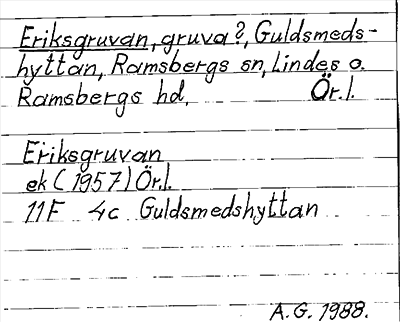 Eriksgruvan, gruva?, Guldsmeds-
hyttan, Ramsbergs sn, Lindes o.
Ramsbergs hd, Ör.l.
Eriksgruvan
ek (1957) Ör.l.
11F 4c Guldsmedshyttan
A.G. 1988.